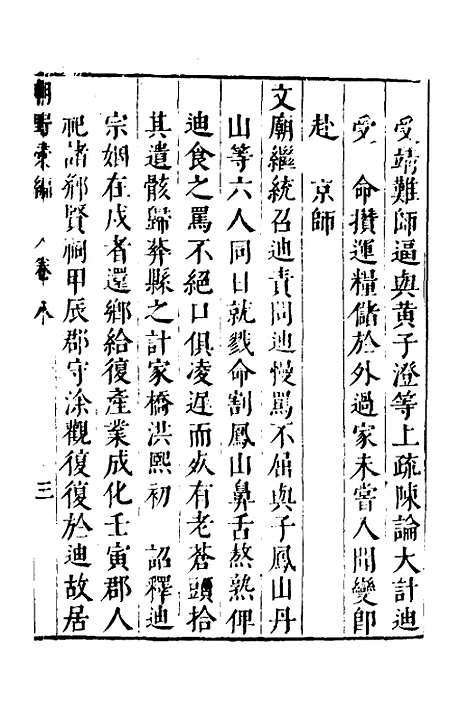 受靖難師逼與黄子澄等上疏陳論大計迪
受　命攢運糧儲於外過家未嘗入聞變卽
赴　京師
文廟繼統召迪責問迪慢罵不屈與子鳳山丹
山等六人同日就戮命割鳳山鼻舌熬熟俾
迪食之罵不絕口俱凌遲而死有老蒼頭拾
其遺骸歸葬縣之計家橋洪熙初　詔釋迪
宗姻在戍者還鄉給復產業成化壬寅郡人
祀諸鄉賢祠甲辰郡守涂觀復復於迪故居
朝野彙編　卷八　三